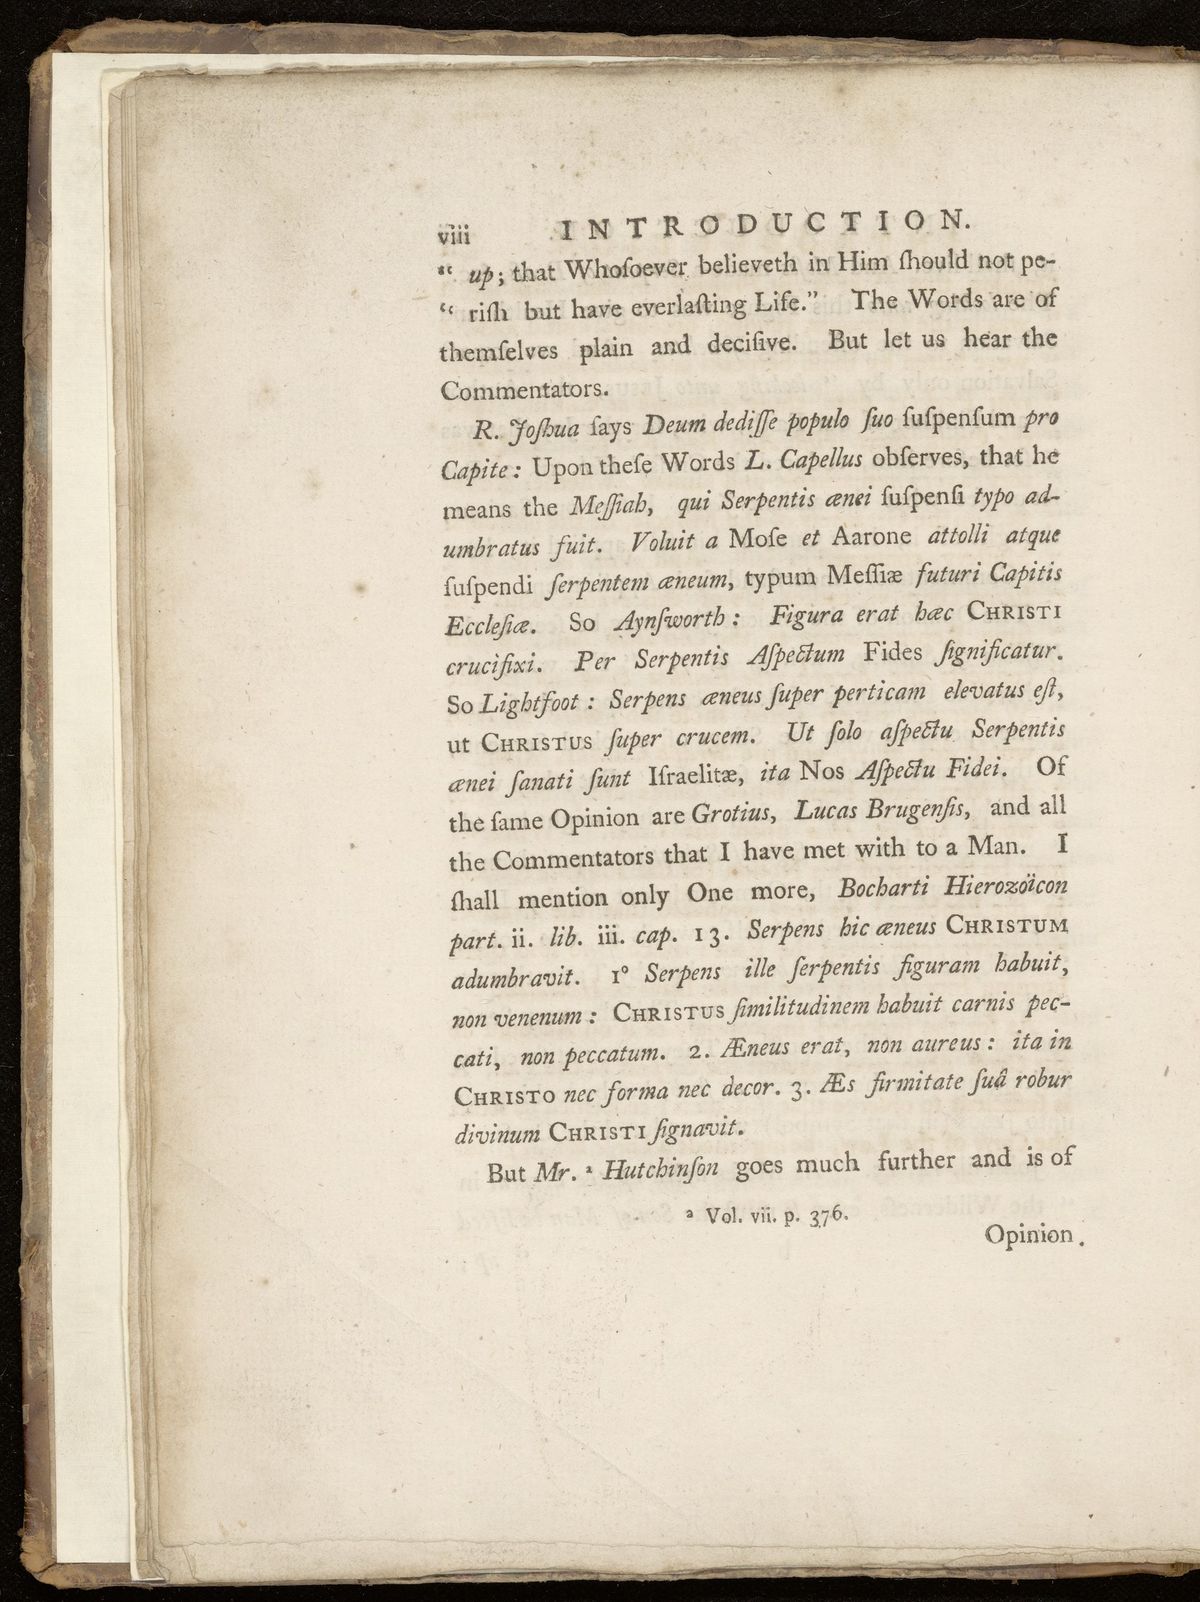 viii INTRODUCTION.
“ up; that Whoſoever believeth in Him ſhould not pe-
“ riſh but have everlaſting Life.” The Words are of
themſelves plain and deciſive. But let us hear the
Commentators.
R. Joſhua ſays Deum dediſſe populo ſuo ſuſpenſum pro
Capite: Upon theſe Words L. Capellus obſerves, that he
means the Meſſiah, qui Serpentis ænei ſuſpenſi typo ad-
umbratus fuit. Voluit a Moſe et Aarone attolli atque
ſuſpendi ſerpentem æneum, typum Meſſiæ futuri Capitis
Eccleſiæ. So Aynſworth: Figura erat hæc CHRISTI
crucifixi. Per Serpentis Aſpectum Fides ſignificatur.
So Lightfoot: Serpens æneus ſuper perticam elevatus eſt,
ut CHRISTUS ſuper crucem. Ut ſolo aſpectu Serpentis
ænei ſanati ſunt Iſraelitæ, ita Nos Aſpectu Fidei. Of
the ſame Opinion are Grotius, Lucas Brugenſis, and all
the Commentators that I have met with to a Man. I
ſhall mention only One more, Bocharti Hierozöicon
part. ii. lib. iii. cap. 13. Serpens hic æneus CHRISTUM
adumbravit. 1° Serpens ille ſerpentis figuram habuit,
non venenum: CHRISTUS ſimilitudinem habuit carnis pec-
cati, non peccatum. 2. Æneus erat, non aureus: ita in
CHRISTO nec forma nec decor. 3. Æs firmitate ſuâ robur
divinum CHRISTI ſignavit.
But Mr. ᵃ Hutchinſon goes much further and is of
ᵃ Vol. vii. p. 376.
Opinion.